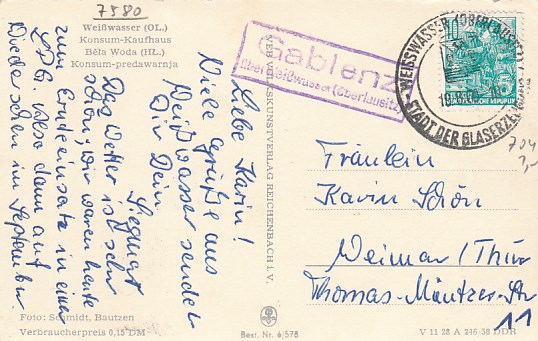 7580
Weißwasser (OL.)
Konsum-Kaufhaus
Běła Woda (HL.)
Konsum-predawarnja
Liebe Karin!
Viele Grüße aus
Weißwasser sendet
Dir Dein
Siegmar
Das Wetter ist sehr
schön, wir waren heute
zum Ernteeinsatz in einer
LPG. Also dann auf
Wiedersehen im September
Foto: Schmidt, Bautzen
Verbraucherpreis 0,15 DM
VEB VOLKSKUNSTVERLAG REICHENBACH i. V.
Best. Nr. 6/578
Gablenz
über Weißwasser (Oberlausitz)
WEISSWASSER (OBERLAUSITZ)
STADT DER GLASERZEUGUNG
10
Fräulein
Karin Schön
Weimar / Thür
Thomas-Müntzer-Str
11
V 11 28 A 246/58 DDR